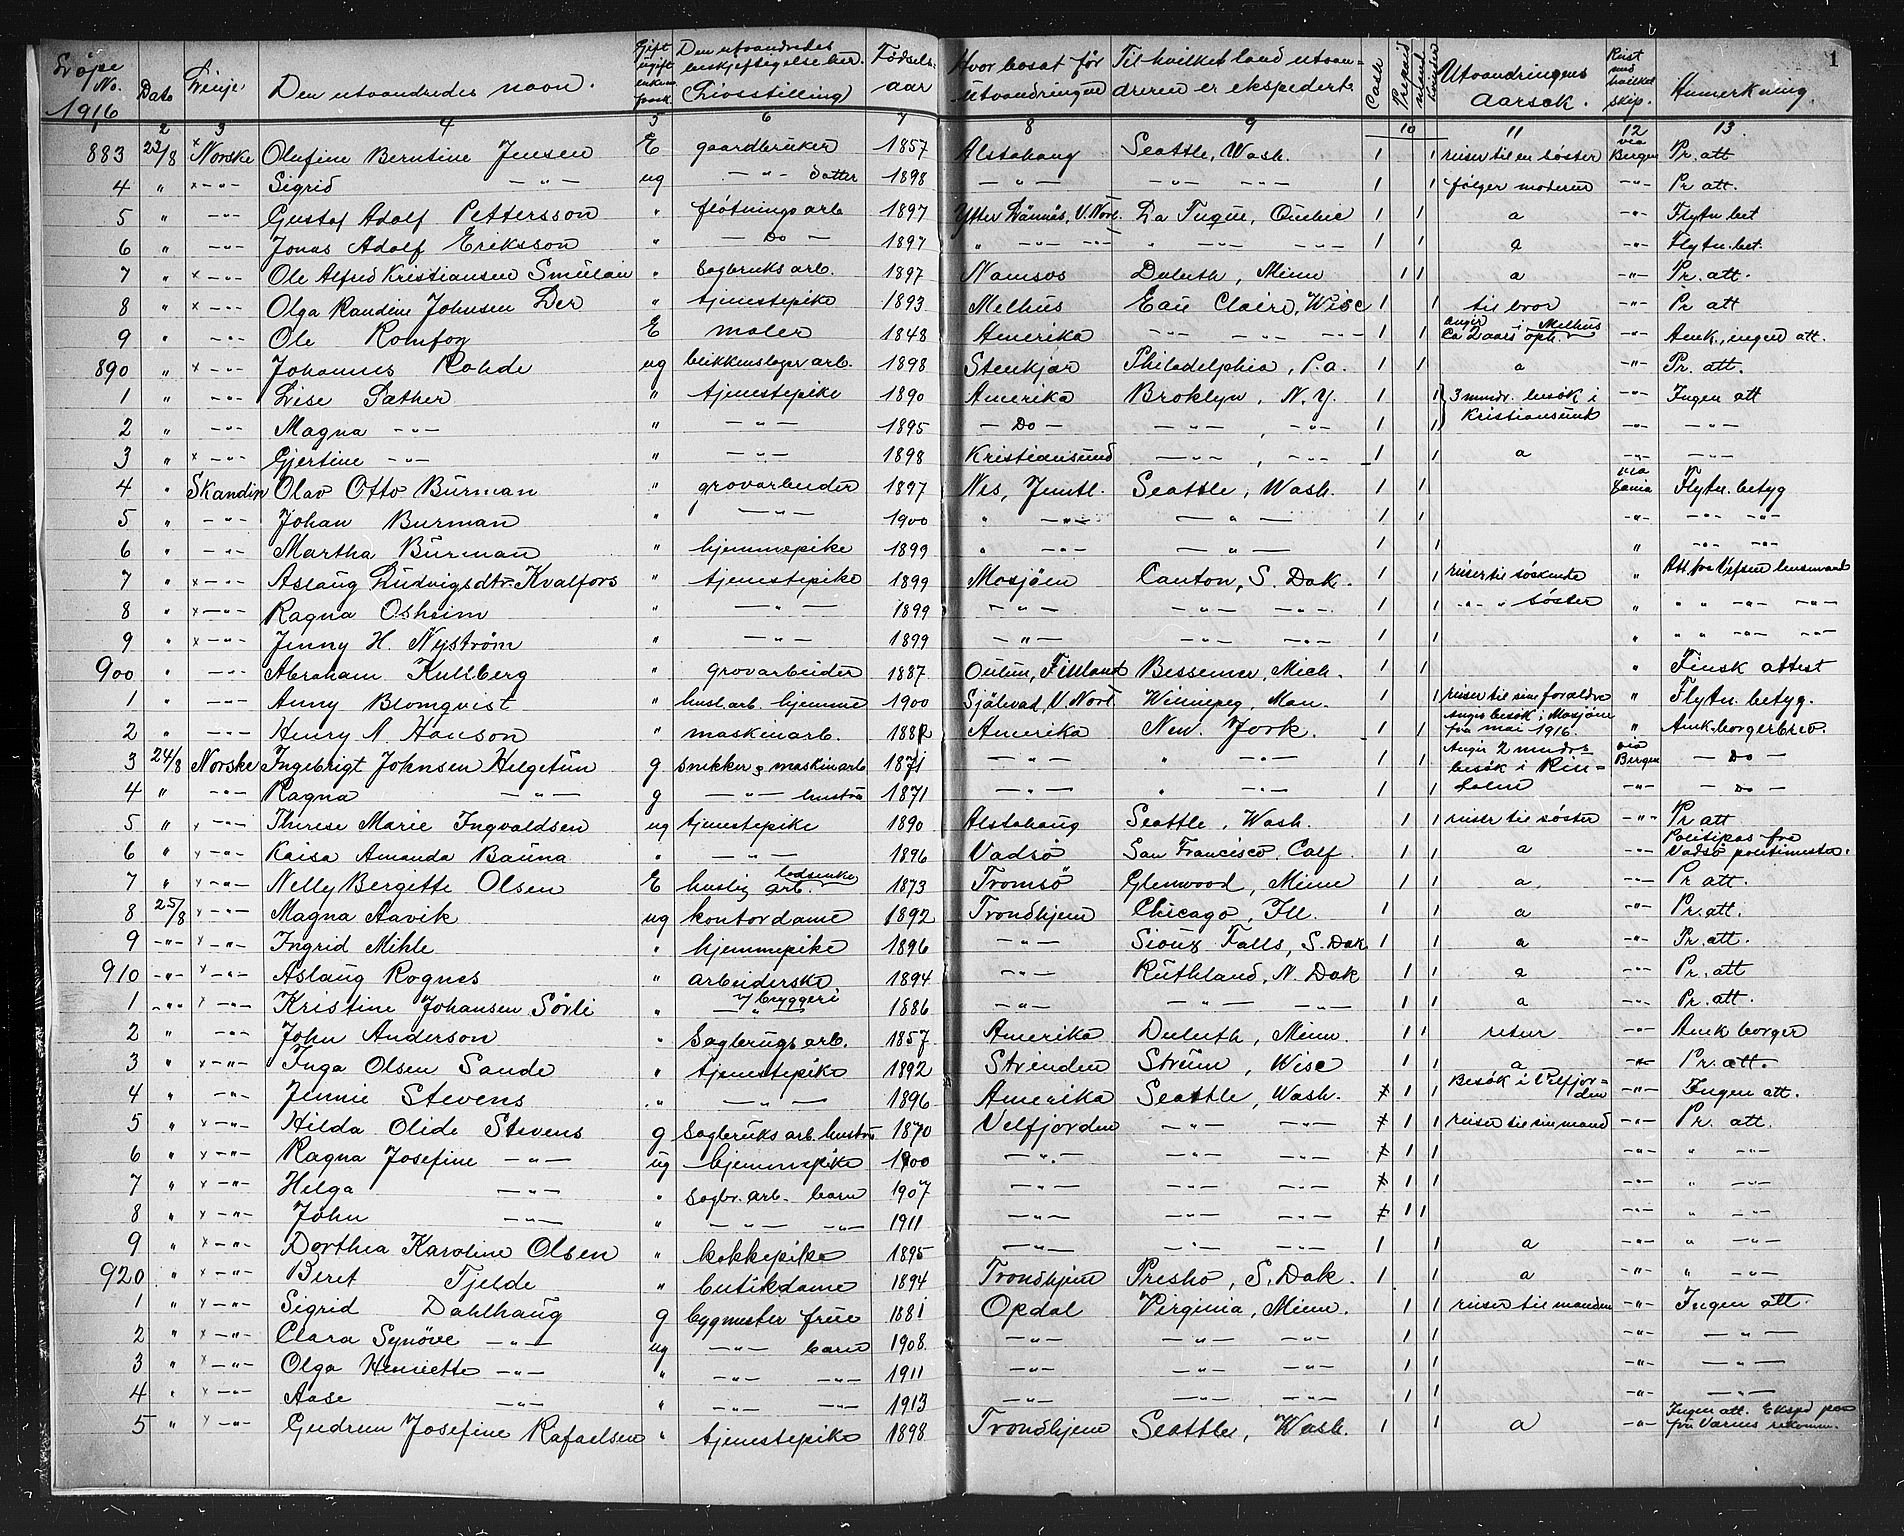 1
Löpe No. 1916 | Dato | Linje | Den utvandredes navn. | Gift ugift enkem. | Den utvandredes beskjeftigelse her. (Livsstilling) | Födsels-aar | Hvor bosat för utvandringen | Til hvilket land utvan-dreren er ekspedert. | Cash | Prepaid | Utvandringens aarsak. | Reist med hvilket skip. | Anmerkning.
1 | 2 | 3 | 4 | 5 | 6 | 7 | 8 | 9 | 10 | 11 | 12 | 13
883 | 23/8 | x Norske | Olufine Berntine Jensen | E | gaardbruker | 1857 | Alstahaug | Seattle, Wash. | 1 | 1 | reiser til en söster | via Bergen | Pr. att
4 | " | x -"- | Sigrid -"- | ug | -"- datter | 1898 | -"- | -"- -"- | 1 | 1 | fölger moderen | -"- | Pr att.
5 | " | -"- | Gustaf Adolf Pettersson | " | flötningsarb | 1897 | Ytter Lännäs, V. Norl. | La Tuque, Quebec | 1 | 1 | a | -"- | Flytn. bet
6 | " | -"- | Jonas Adolf Eriksson | " | - Do - | 1897 | " -"- -"- | " -"- -"- | 1 | 1 | a | -"- | Flytn. bet.
7 | " | x -"- | Ole Alfred Kristiansen | " | Sagbruks arb. | 1897 | Namsos | Duluth, Minn | 1 | 1 | a | -"- | Pr. att.
8 | " | x -"- | Olga Randine Johnsen Ler | " | tjenestepike | 1893 | Melhus | Eau Claire, Wisc | 1 | 1 | til bror | -"- | Pr att
9 | " | -"- | Ole | E | maler | 1848 | Amerika | -"- -"- | 1 | 1 | angir i Melhus ca 2 aars oph. | -"- | Amk., ingen att.
890 | " | x -"- | Johannes Rohde | ug | blikkenslager arb. | 1898 | Stenkjær | Philadelphia, P.a. | 1 | 1 | a | -"- | Pr. att.
1 | " | -"- | Lise Sæther | " | tjenestepike | 1890 | Amerika | Broklyn, N.Y. | 1 | 1 | 3 mndr. besök i Kristiansund | -"- | Ingen att
2 | " | -"- | Magna -"- | " | -"- | 1895 | - Do - | -"- , -"- | 1 | 1 | -"- | -"-
3 | " | x -"- | Gjertine -"- | " | -"- | 1898 | Kristiansund | -"- , -"- | 1 | 1 | a | -"- | -"-
4 | " | Skandin | Olav Otto Burman | " | grovarbeider | 1897 | Nes, Jemtl. | Seattle, Wash. | 1 | 1 | via | Flytn. betyg
5 | " | -"- | Johan Burman | " | -"- | 1900 | " -"- | -"- | 1 | 1 | -"- | -"- -"-
6 | " | -"- | Martha Burman | " | hjemmepike | 1899 | " -"- | -"- | 1 | 1 | " | -"- -"-
7 | " | x -"- | Aslaug Ludvigsdtr. Kvalfors | " | tjenestepike | 1899 | Mosjöen | Canton, S. Dak. | 1 | 1 | reiser til söskende | " | Att. fra Vefsen lensmand
8 | " | x -"- | Ragna Osheim | " | -"- | 1899 | -"- | -"- -"- | 1 | 1 | -"- " söster | " | " " -"- -"-
9 | " | x -"- | Jenny H. Nyström | " | -"- | 1899 | -"- | -"- -"- | 1 | 1 | " | " " -"- -"-
900 | " | -"- | Abraham Kullberg | " | grovarbeider | 1887 | Finland | Bessemer, Mich. | 1 | 1 | " | Finsk attest
1 | " | -"- | Anny Blomqvist | " | husl. arb. hjemme | 1900 | Själevad, V. Norl. | Winnipeg, Man. | 1 | 1 | reiser til sine foraldre | " | Flytn. betyg.
2 | " | -"- | Henry A. Hanson | " | maskinarb. | 1882 | Amerika | New. York. | 1 | 1 | Angir besök i Mosjöen fra mai 1916. | " | Amk. borgerbrev.
3 | 24/8 | Norske | Ingebrigt Johnsen Helgetun | g | snekker & maskinarb | 1871 | -"- | " -"- | 1 | 1 | Angir 2 mndrs besök i Rin- | via Bergen | - Do -
4 | " | -"- | Ragna -"- | g | -"- hustru | 1871 | -"- | " -"- | 1 | 1 | dalen | -"- | - Do -
5 | " | x -"- | Therese Marie Ingvaldsen | ug | tjenestepike | 1890 | Alstahaug | Seattle, Wash. | 1 | 1 | reiser til söster | -"- | Pr att
6 | " | x -"- | Kaisa Amanda Bauna | " | -"- | 1896 | Vadsö | San Francisco, Calf. | 1 | 1 | a | -"- | Politipas fra Vadsö politimester.
7 | " | x -"- | Nelly Bergitte Olsen | E | huslig arb. | 1873 | Tromsö | Glenwood, Minn | 1 | 1 | a. | -"- | Pr att.
8 | 25/8 | x -"- | Magna Aavik | ug | kontordame | 1892 | Trondhjem | Chicago, Ill. | 1 | 1 | a | -"- | Pr. att.
9 | -"- | x -"- | Ingrid Mihle | " | hjemmepike | 1896 | -"- | Sioux Falls, S. Dak | 1 | 1 | a | -"- | Pr. att.
910 | -"- | x -"- | Aslaug Rognes | " | arbeiderske | 1894 | -"- | Ruthland, N. Dak | 1 | 1 | a | -"- | Pr. att
1 | -"- | x -"- | Kristine Johansen Sörli | " | -"- v/ bryggeri | 1886 | -"- | -"- -"- | 1 | 1 | a | -"- | Pr. att.
2 | " | -"- | John Anderson | " | Sagbrugs arb. | 1857 | Amerika | Duluth, Minn. | 1 | 1 | retur | -"- | Amk borger
3 | " | x -"- | Inga Olsen Sande | " | tjenestepike | 1892 | Strinden | Strum, Wisc | 1 | 1 | a | -"- | Pr. att.
4 | " | -"- | Jennie Stevens | " | -"- | 1896 | Amerika | Seattle, Wash. | 1 | 1 | Besök i Velfjor-den | -"- | Ingen att.
5 | " | x -"- | Hilda Olide Stevens | g | Sagbruks arb. hustru | 1870 | Velfjorden | -"- -"- | 1 | 1 | reiser til sin mand | -"- | Pr. att.
6 | " | x -"- | Ragna Josefine -"- | ug | hjemmepike | 1900 | -"- | -"- -"- | 1 | 1 | -"- | " -"-
7 | " | x -"- | Helga -"- | " | Sagbr. arb. barn | 1907 | -"- | -"- -"- | 1 | 1 | -"- | " -"-
8 | " | x -"- | John -"- | " | -"- -"- | 1911 | -"- | -"- -"- | 1 | 1 | -"- | " -"-
9 | " | x -"- | Dorthea Karoline Olsen | " | kokkepike | 1895 | -"- | -"- -"- | 1 | 1 | a | -"- | " -"-
920 | " | x -"- | Beret Fjelde | " | butikdame | 1894 | Trondhjem | Presho, S. Dak. | 1 | 1 | a | -"- | " -"-
1 | " | x -"- | Sigrid Dahlhaug | g | bygmester frue | 1881 | Opdal | Virginia, Minn. | 1 | 1 | reiser til manden | -"- | Ingen att.
2 | " | x -"- | Clara Synöve -"- | ug | -"- barn | 1908. | -"- | -"- -"- | 1 | 1 | -"- | -"-
3 | " | x -"- | Olga Henriette -"- | " | -"- -"- | 1911 | -"- | -"- -"- | 1 | 1 | -"- | -"-
4 | " | x -"- | Aase -"- | " | -"- -"- | 1913 | -"- | -"- -"- | 1 | 1 | -"- | -"-
5 | " | x -"- | Gudrun Josefine Rafaelsen | " | tjenestepike | 1898 | Trondhjem | Seattle, Wash. | 1 | 1 | a | -"- | Ingen att. Eksped. fra Varnes